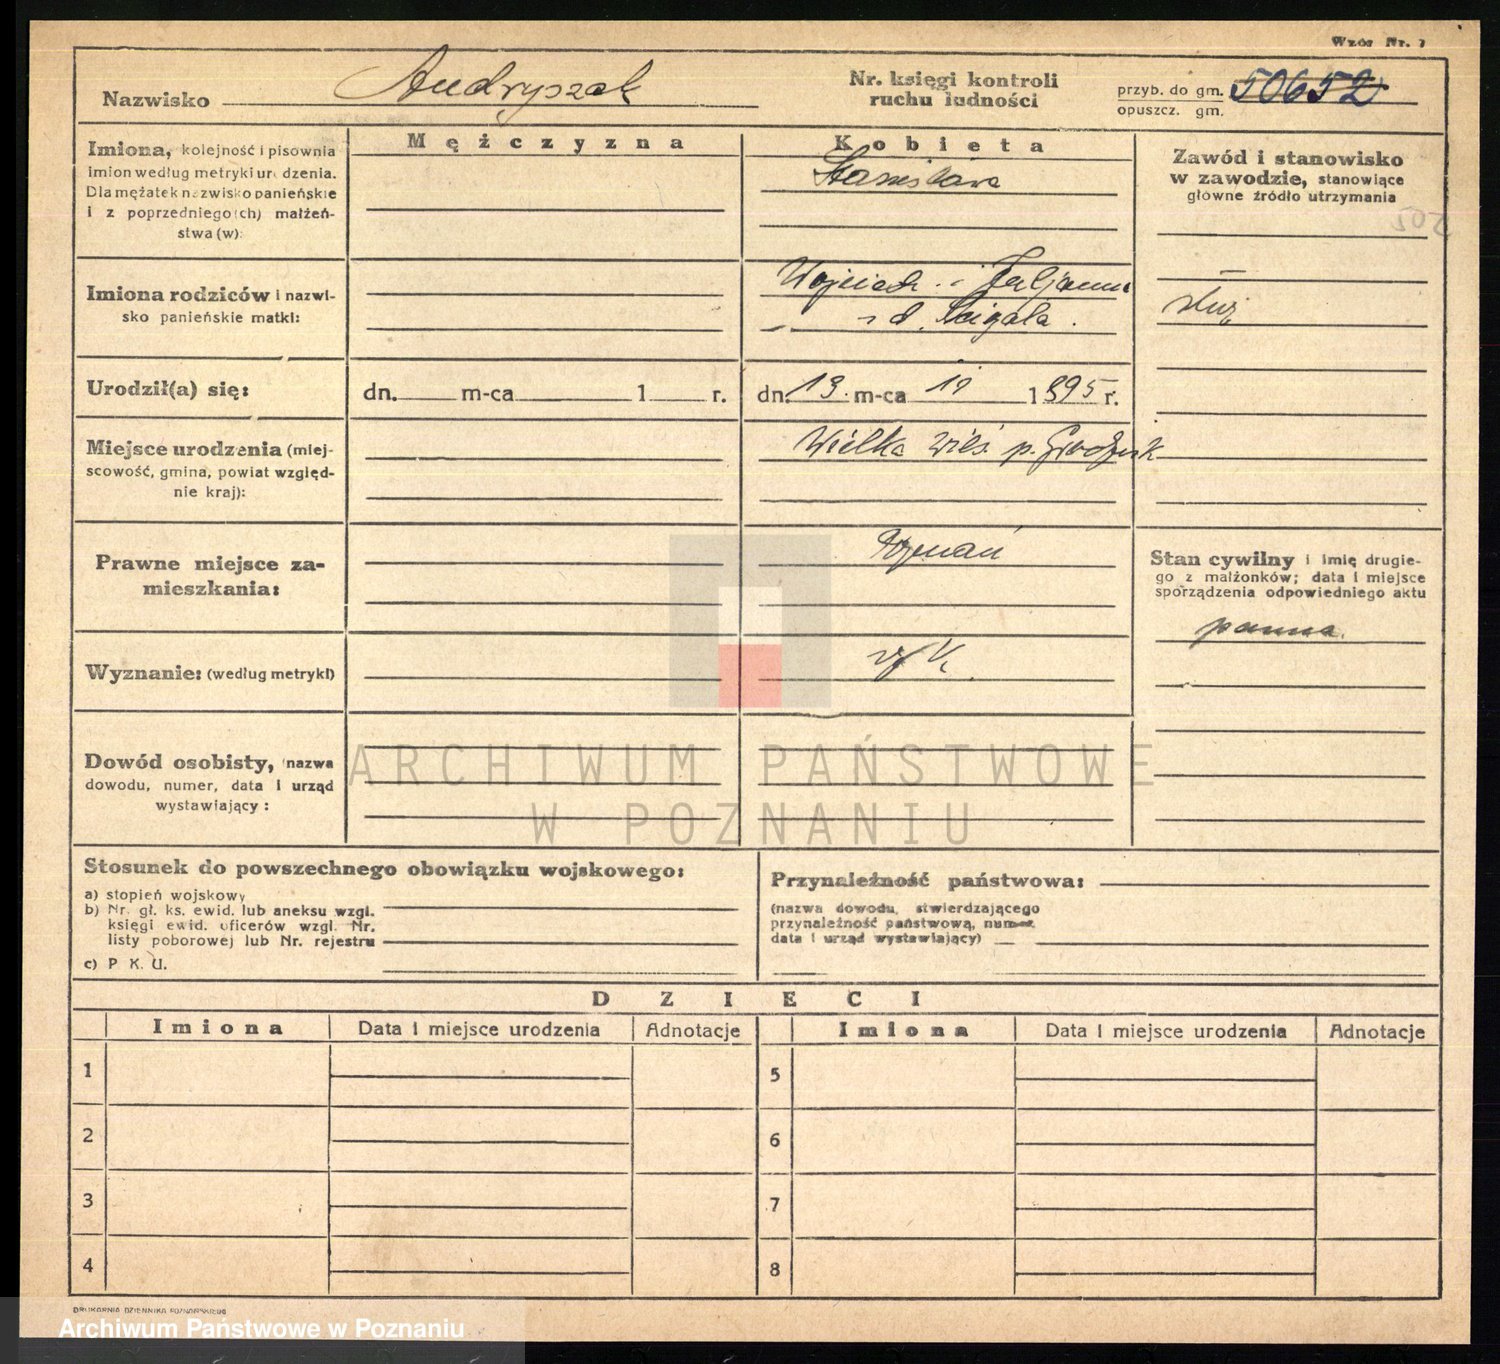 Wzór Nr. 7
Nazwisko Andryszak
Nr. księgi kontroli
ruchu ludności
przyb. do gm. 50652
opuszcz. gm.
Imiona, kolejność i pisownia
imion według metryki urodzenia.
Dla mężatek nazwisko panieńskie
i z poprzedniego(ch) małżeń-
stwa (w):
Mężczyzna
Kobieta
Stanisława
Zawód i stanowisko
w zawodzie, stanowiące
główne źródło utrzymania
służ.
Imiona rodziców i nazwi-
sko panieńskie matki:
Wojciech i
z d.
Urodził(a) się:
dn. m-ca 1 r.
dn. 13. m-ca 10 1895 r.
Miejsce urodzenia (miej-
scowość, gmina, powiat względ-
nie kraj):
Wielka wieś p. Grodzisk
Prawne miejsce za-
mieszkania:
Poznań
Stan cywilny i imię drugie-
go z małżonków; data i miejsce
sporządzenia odpowiedniego aktu
panna.
Wyznanie: (według metryki)
rz k.
Dowód osobisty, (nazwa
dowodu, numer, data i urząd
wystawiający:
ARCHIWUM PAŃSTWOWE
W POZNANIU
Stosunek do powszechnego obowiązku wojskowego:
a) stopień wojskowy
b) Nr. gł. ks. ewid. lub aneksu wzgl.
księgi ewid. oficerów wzgl. Nr.
listy poborowej lub Nr. rejestru
c) P. K. U.
Przynależność państwowa:
(nazwa dowodu, stwierdzającego
przynależność państwową, numer
data i urząd wystawiający)
DZIECI
Imiona Data i miejsce urodzenia Adnotacje Imiona Data i miejsce urodzenia Adnotacje
1 5
2 6
3 7
4 8
DRUKARNIA DZIENNIKA POZNAŃSKIEGO
Archiwum Państwowe w Poznaniu